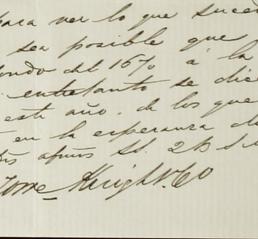 para ver lo que suced
sea posible que
ondo del 16% á la
entretanto se dic
este año, de los que
en la esperanza de
afmos SS. 2 B S M
Knight & Co